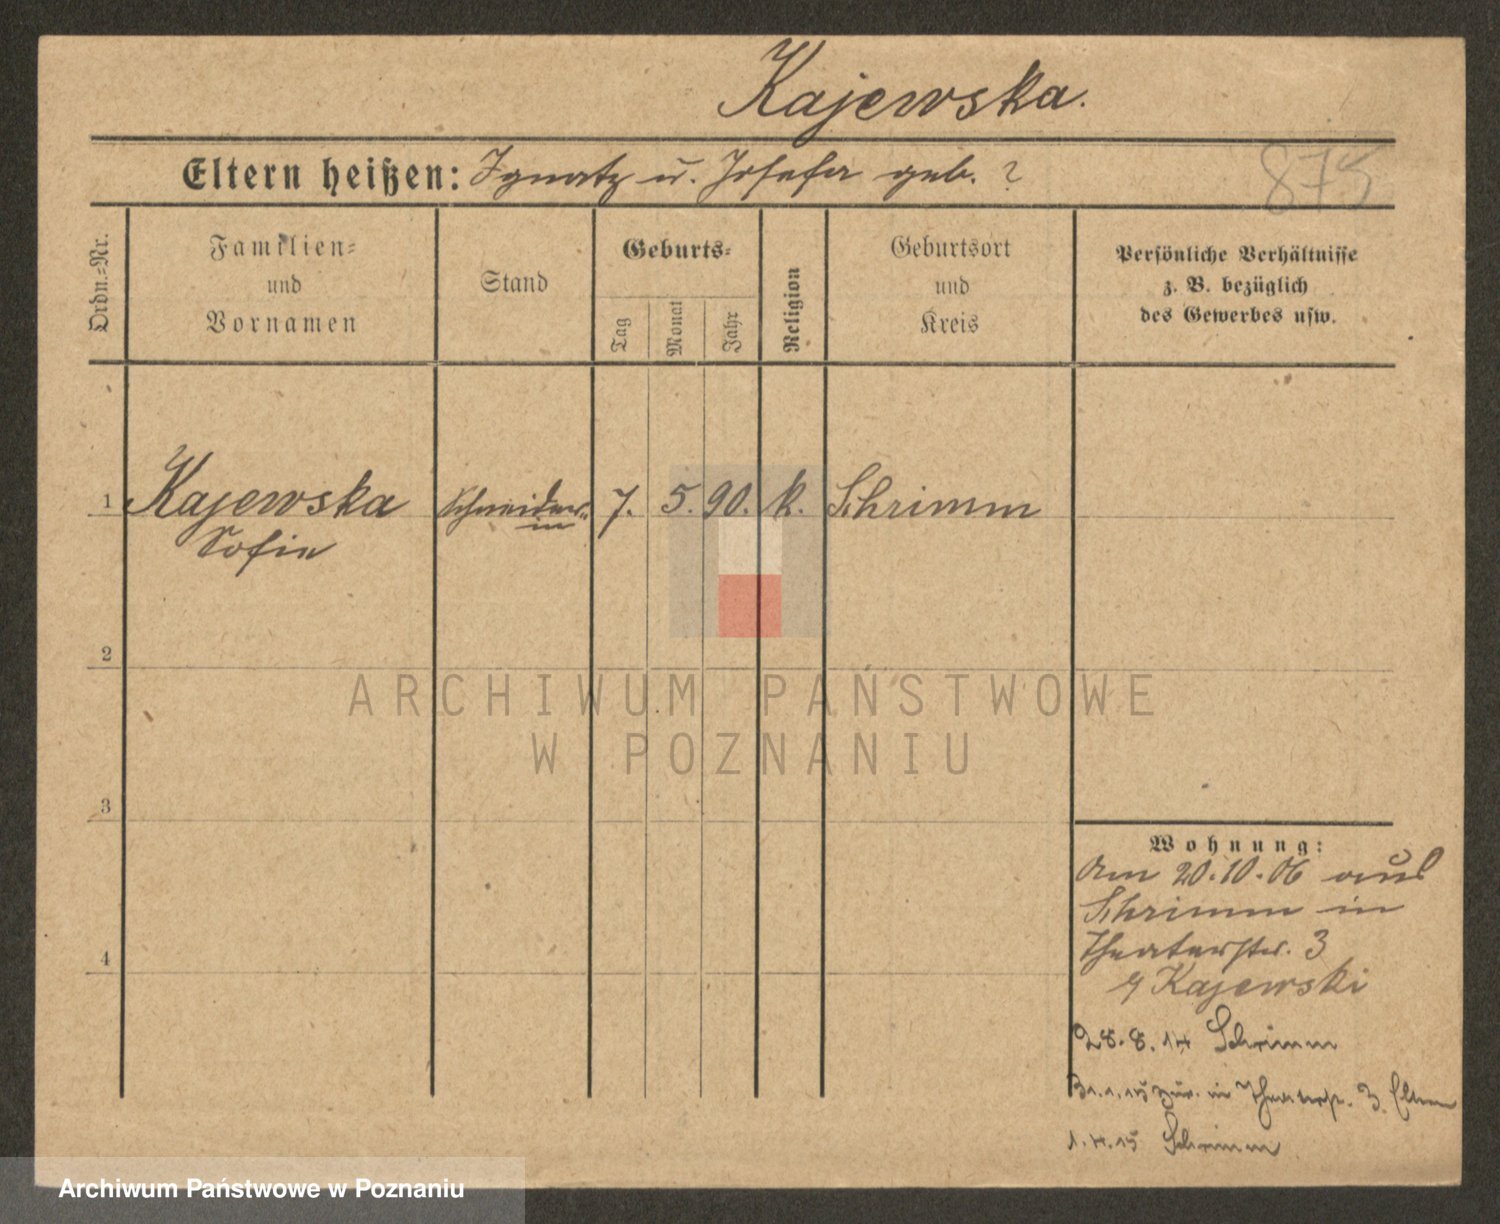 Kajewska.
875
Eltern heißen: Ignatz u. Josefa geb. ?
Ordn.=Nr.
Familien=
und
Vornamen
Stand
Geburts=
Tag
Monat
Jahr
Religion
Geburtsort
und
Kreis
Persönliche Verhältnisse
z. B. bezüglich
des Gewerbes usw.
1 Kajewska Schneider= 7. 5. 90. k. Schrimm
Sofie in
2
3
4
ARCHIWUM PAŃSTWOWE
W POZNANIU
Wohnung:
Am 20.10.06 aus
Schrimm in
Theaterstr. 3
Kajewski
28.8.14 Schrimm
31.1.15 zur. in Theaterstr. 3. Eltern
1.4.15 Schrimm
Archiwum Państwowe w Poznaniu